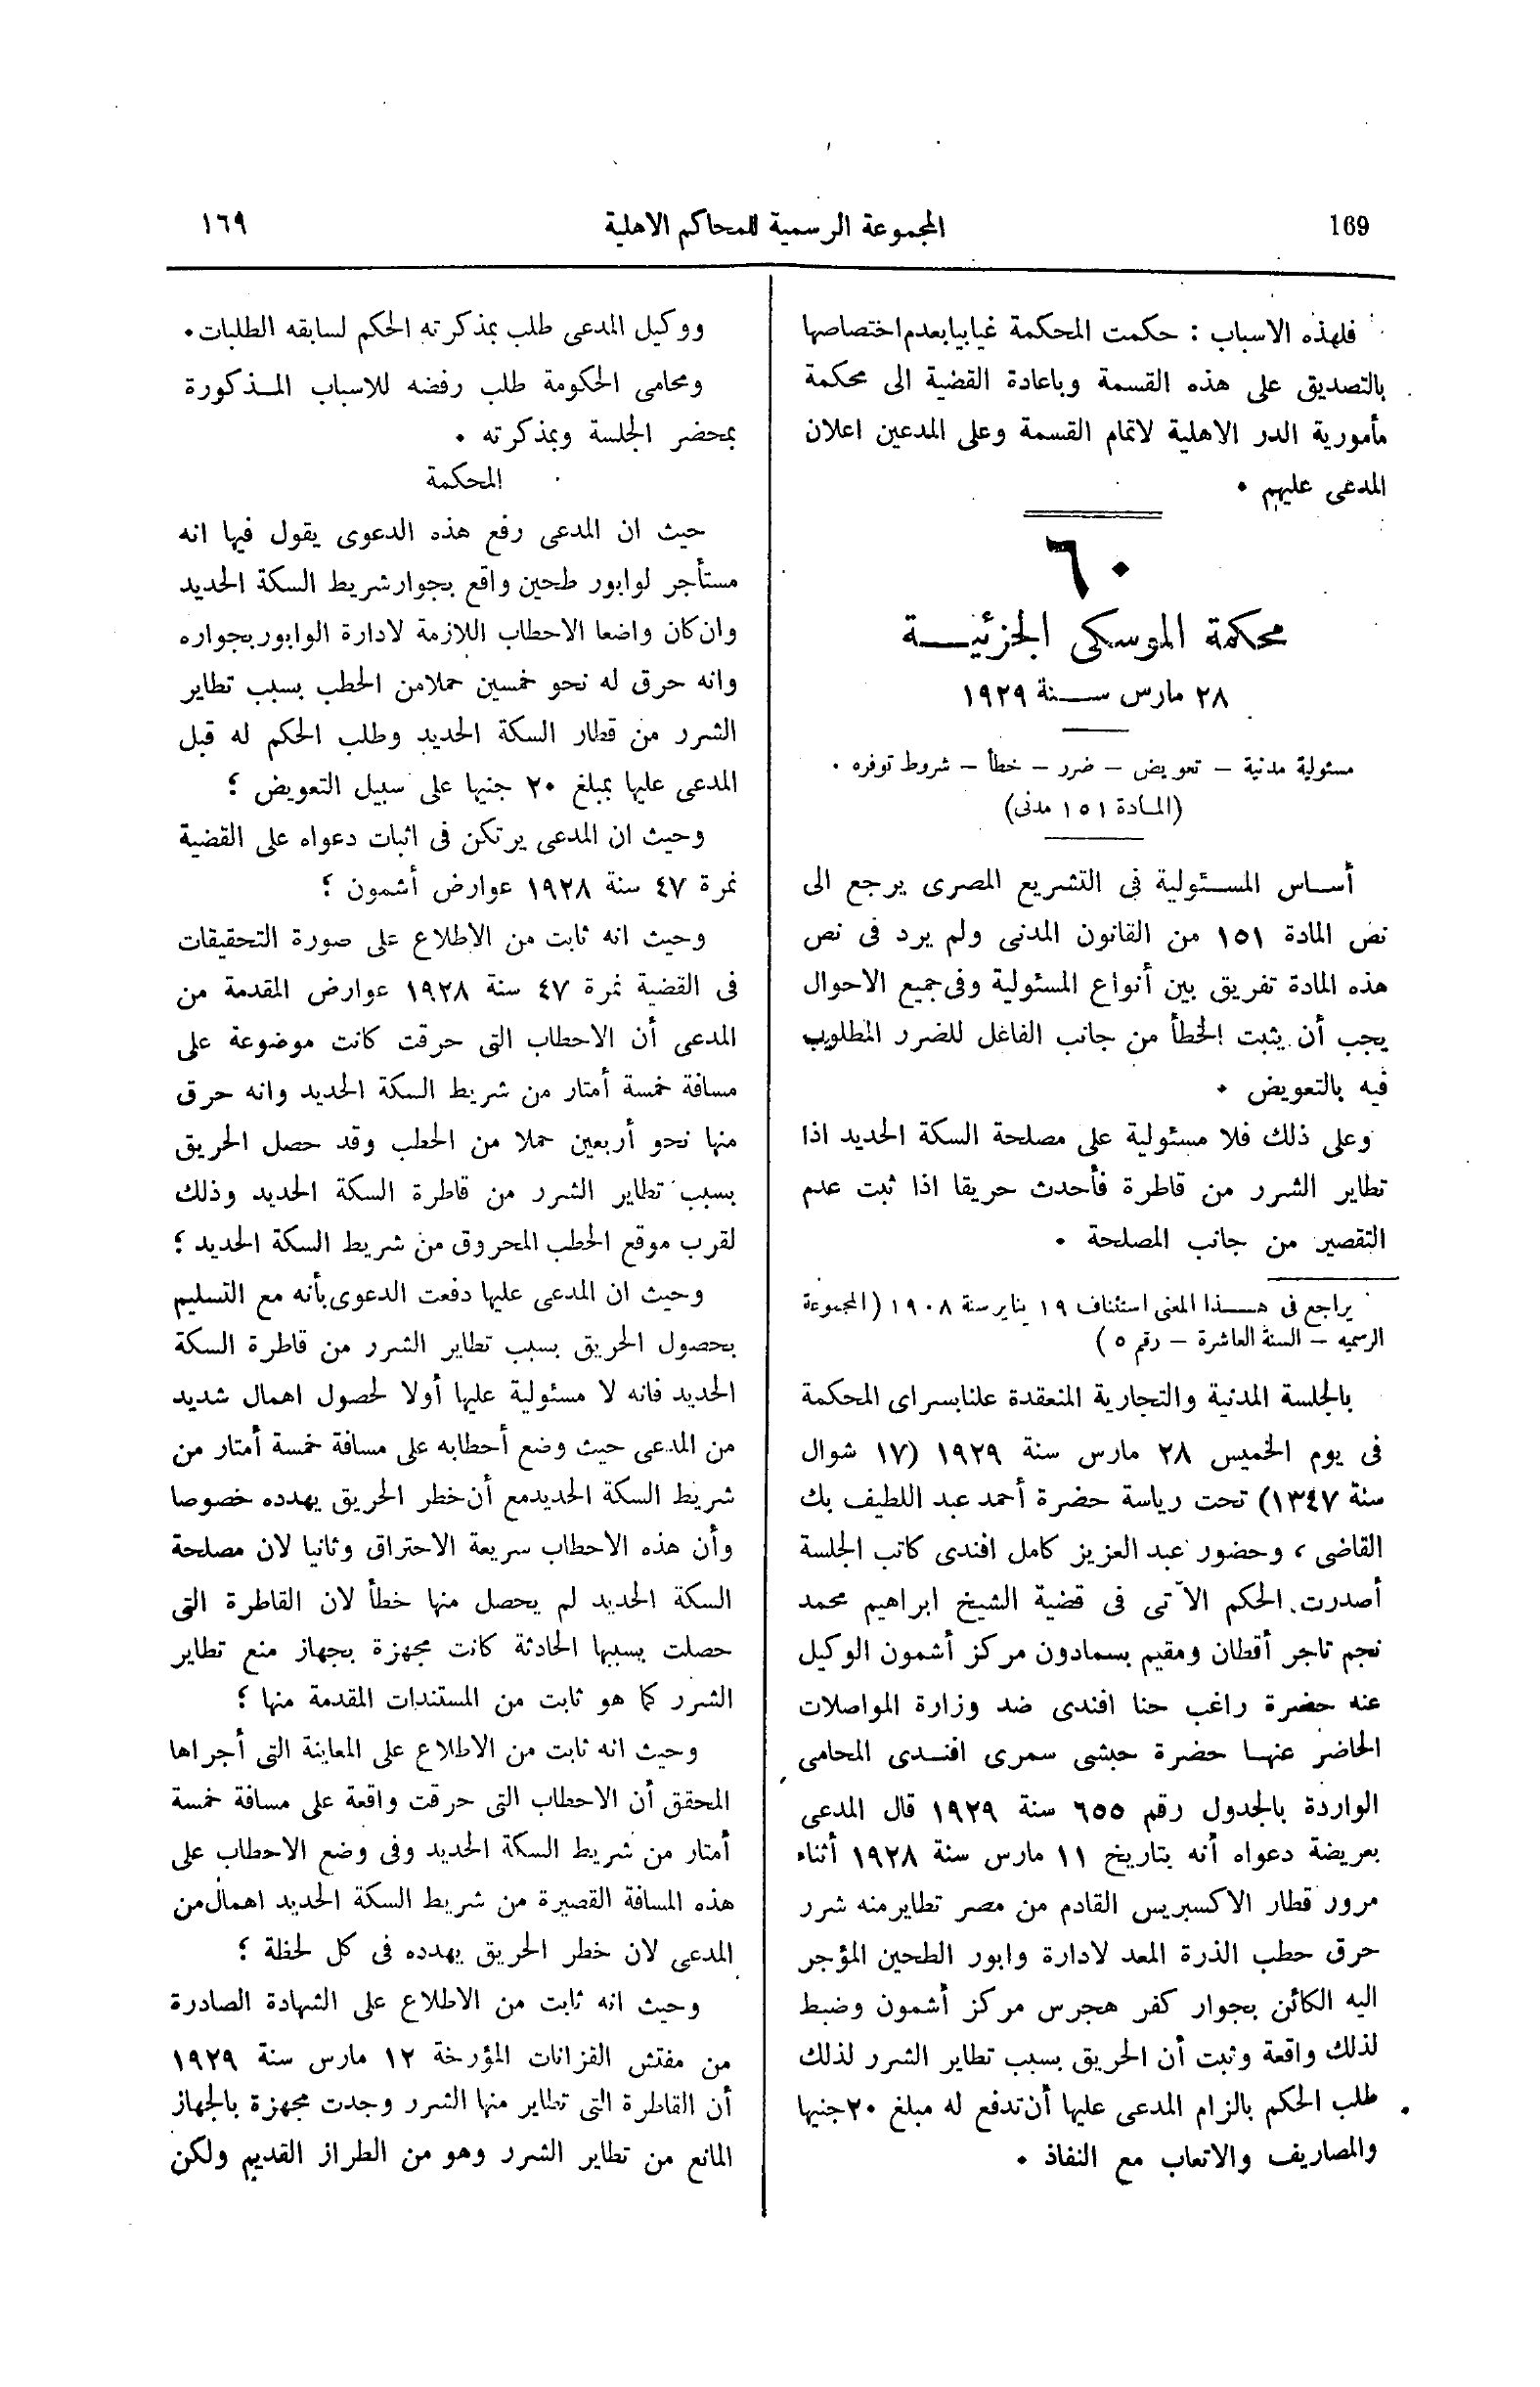 169
المجموعة الرسمية للمحاكم الاهلية
١٦٩
فلهذه الاسباب : حكمت المحكمة غيابيا بعدم اختصاصها
بالتصديق على هذه القسمة وباعادة القضية الى محكمة
مأمورية الدر الاهلية لاتمام القسمة وعلى المدعين اعلان
المدعى عليهم .
٦٠
محكمة الموسكى الجزئية
٢٨ مارس سنة ١٩٢٩
مسئولية مدنية – تعويض – ضرر – خطأ – شروط توفره .
(المادة ١٥١ مدنى)
أساس المسئولية فى التشريع المصرى يرجع الى
نص المادة ١٥١ من القانون المدنى ولم يرد فى نص
هذه المادة تفريق بين أنواع المسئولية وفى جميع الاحوال
يجب أن يثبت الخطأ من جانب الفاعل للضرر المطلوب
فيه بالتعويض .
وعلى ذلك فلا مسئولية على مصلحة السكة الحديد اذا
تطاير الشرر من قاطرة فأحدث حريقا اذا ثبت عدم
التقصير من جانب المصلحة .
يراجع فى هذا المعنى استئناف ١٩ يناير سنة ١٩٠٨ (المجموعة
الرسميه – السنة العاشرة – رقم ٥ )
بالجلسة المدنية والتجارية المنعقدة علنا بسراى المحكمة
فى يوم الخميس ٢٨ مارس سنة ١٩٢٩ (١٧ شوال
سنة ١٣٤٧) تحت رياسة حضرة أحمد عبد اللطيف بك
القاضى ، وحضور عبد العزيز كامل افندى كاتب الجلسة
أصدرت الحكم الآتى فى قضية الشيخ ابراهيم محمد
نجم تاجر أقطان ومقيم بسمادون مركز أشمون الوكيل
عنه حضرة راغب حنا افندى ضد وزارة المواصلات
الحاضر عنها حضرة حبشى سمرى افندى المحامى
الواردة بالجدول رقم ٦٥٥ سنة ١٩٢٩ قال المدعى
بعريضة دعواه أنه بتاريخ ١١ مارس سنة ١٩٢٨ أثناء
مرور قطار الاكسبريس القادم من مصر تطاير منه شرر
حرق حطب الذرة المعد لادارة وابور الطحين المؤجر
اليه الكائن بجوار كفر هجرس مركز أشمون وضبط
لذلك واقعة وثبت أن الحريق بسبب تطاير الشرر لذلك
طلب الحكم بالزام المدعى عليها أن تدفع له مبلغ ٢٠ جنيها
والمصاريف والاتعاب مع النفاذ .
ووكيل المدعى طلب بمذكرته الحكم لسابقه الطلبات .
ومحامى الحكومة طلب رفضه للاسباب المذكورة
بمحضر الجلسة وبمذكرته .
المحكمة
حيث ان المدعى رفع هذه الدعوى يقول فيها انه
مستأجر لوابور طحين واقع بجوار شريط السكة الحديد
وان كان واضعا الاحطاب اللازمة لادارة الوابور بجواره
وانه حرق له نحو خمسين حملا من الحطب بسبب تطاير
الشرر من قطار السكة الحديد وطلب الحكم له قبل
المدعى عليها بمبلغ ٢٠ جنيها على سبيل التعويض ؛
وحيث ان المدعى يرتكن فى اثبات دعواه على القضية
نمرة ٤٧ سنة ١٩٢٨ عوارض أشمون ؛
وحيث انه ثابت من الاطلاع على صورة التحقيقات
فى القضية نمرة ٤٧ سنة ١٩٢٨ عوارض المقدمة من
المدعى أن الاحطاب التى حرقت كانت موضوعة على
مسافة خمسة أمتار من شريط السكة الحديد وانه حرق
منها نحو أربعين حملا من الحطب وقد حصل الحريق
بسبب تطاير الشرر من قاطرة السكة الحديد وذلك
لقرب موقع الحطب المحروق من شريط السكة الحديد ؛
وحيث ان المدعى عليها دفعت الدعوى بأنه مع التسليم
بحصول الحريق بسبب تطاير الشرر من قاطرة السكة
الحديد فانه لا مسئولية عليها أولا لحصول اهمال شديد
من المدعى حيث وضع أحطابه على مسافة خمسة أمتار من
شريط السكة الحديد مع أن خطر الحريق يهدده خصوصا
وأن هذه الاحطاب سريعة الاحتراق وثانيا لان مصلحة
السكة الحديد لم يحصل منها خطأ لان القاطرة التى
حصلت بسببها الحادثة كانت مجهزة بجهاز منع تطاير
الشرر كما هو ثابت من المستندات المقدمة منها ؛
وحيث انه ثابت من الاطلاع على المعاينة التى أجراها
المحقق أن الاحطاب التى حرقت واقعة على مسافة خمسة
أمتار من شريط السكة الحديد وفى وضع الاحطاب على
هذه المسافة القصيرة من شريط السكة الحديد اهمال من
المدعى لان خطر الحريق يهدده فى كل لحظة ؛
وحيث انه ثابت من الاطلاع على الشهادة الصادرة
من مفتش القزانات المؤرخة ١٢ مارس سنة ١٩٢٩
أن القاطرة التى تطاير منها الشرر وجدت مجهزة بالجهاز
المانع من تطاير الشرر وهو من الطراز القديم ولكن